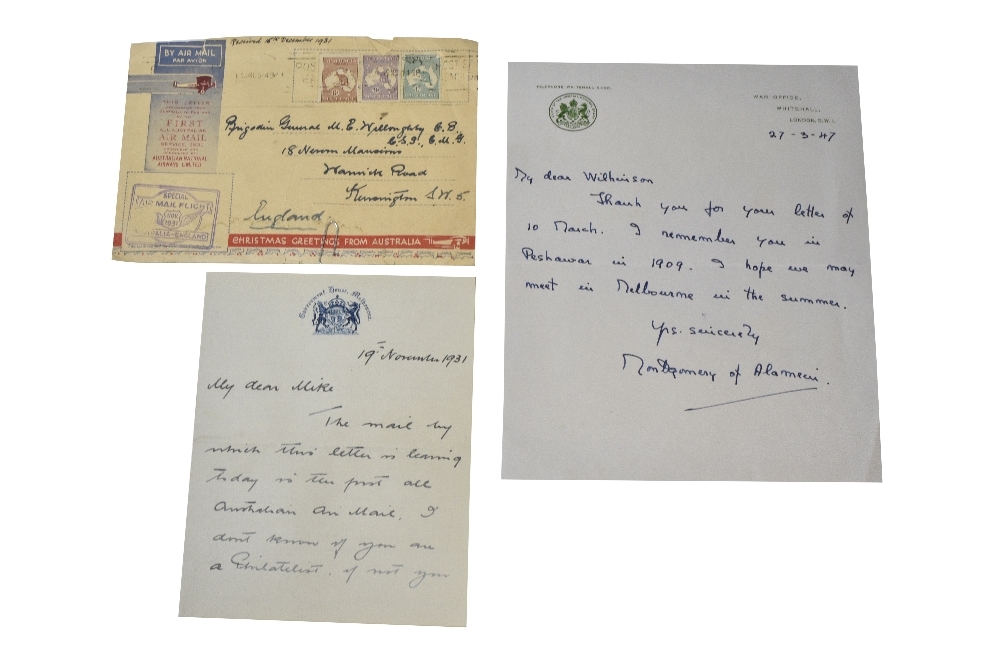 Received 16th December 1931
BY AIR MAIL
PAR AVION
THIS LETTER
FIRST
AIR MAIL
AUSTRALIAN NATIONAL
AIRWAYS LIMITED
Brigadier General M. E. Willoughby C.B.
C.S.I., C.M.G.
18 Nevern Mansions
Warwick Road
Kensington S.W.5.
England
SPECIAL
AIR MAIL FLIGHT
NOV
1931
CHRISTMAS GREETINGS FROM AUSTRALIA
Government House, Melbourne
19th November 1931
My dear Mike
The mail by
which this letter is leaving
today is the first all
Australian Air Mail. I
don't know if you are
a Philatelist. if not you
TELEPHONE WHITEHALL
WAR OFFICE,
WHITEHALL,
LONDON, S.W.1.
27-3-47
My dear Wilkinson
Thank you for your letter of
10 March. I remember you in
Peshawar in 1909. I hope we may
meet in Melbourne in the summer.
Yrs. sincerely
Montgomery of Alamein.